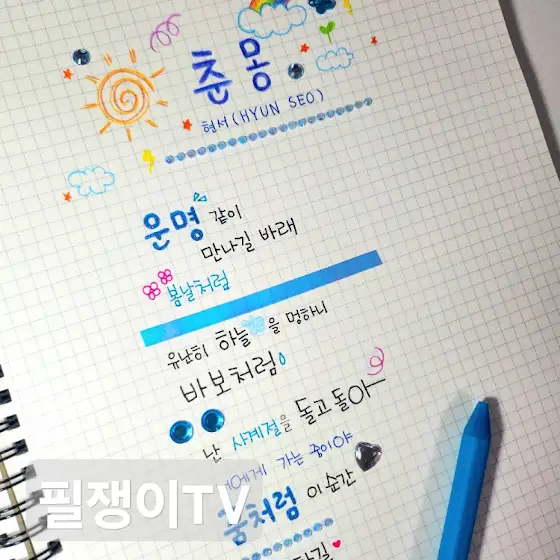 춘몽
현서(HYUN SEO)
운명 같이
만나길 바래
봄날처럼
유난히 하늘을 멍하니
바보처럼
난 사계절을 돌고 돌아
에게 가는 중이야
꿈처럼 이 순간
필쟁이TV